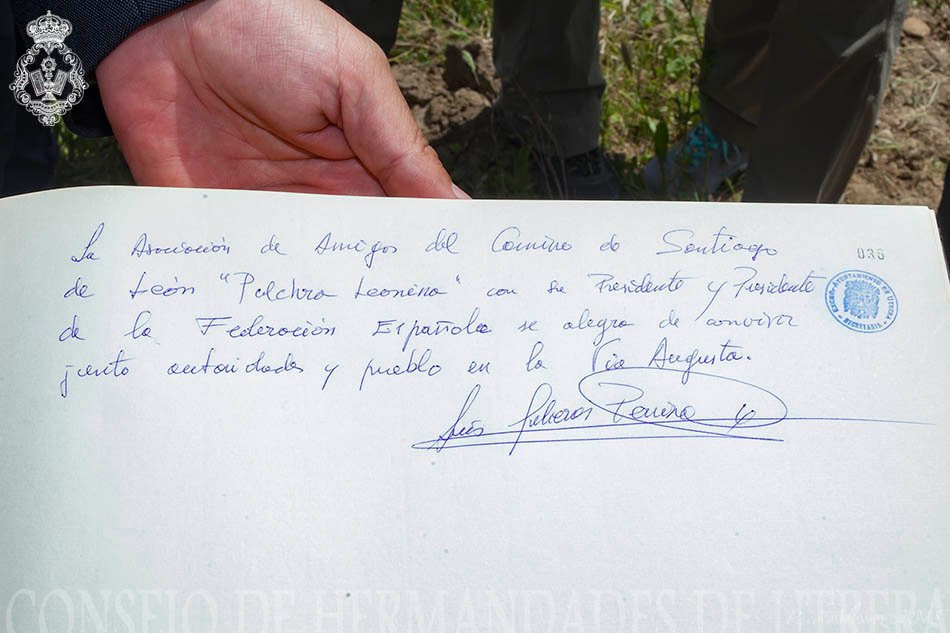 La Asociación de Amigos del Camino de Santiago
036
de León "Pulchra Leonina" con su Presidente y Presidente
de la Federación Española se alegra de convivir
junto autoridades y pueblo en la Vía Augusta.
EXCMO. AYUNTAMIENTO DE UTRERA
SECRETARIA
Luis
CONSEJO DE HERMANDADES DE UTRERA